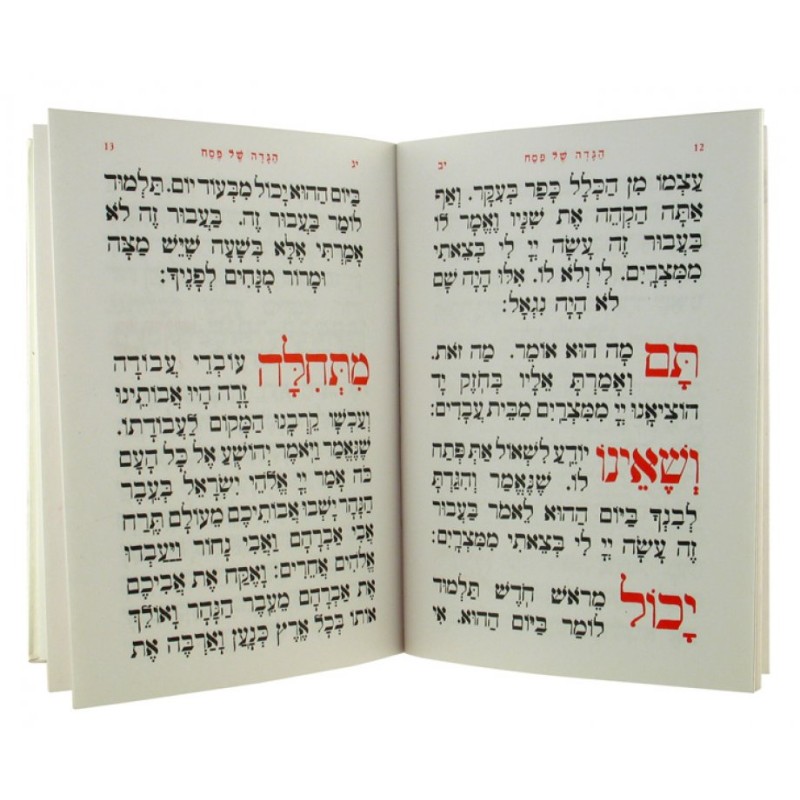 12 הַגָּדָה שֶׁל פֶּסַח יב
עַצְמוֹ מִן הַכְּלָל כָּפַר בְּעִקָּר. וְאַף
אַתָּה הַקְהֵה אֶת שִׁנָּיו וֶאֱמָר לוֹ
בַּעֲבוּר זֶה עָשָׂה יְיָ לִי בְּצֵאתִי
מִמִּצְרָיִם. לִי וְלֹא לוֹ. אִלּוּ הָיָה שָׁם
לֹא הָיָה נִגְאָל:
תָּם מָה הוּא אוֹמֵר. מַה זֹּאת.
וְאָמַרְתָּ אֵלָיו בְּחֹזֶק יָד
הוֹצִיאָנוּ יְיָ מִמִּצְרַיִם מִבֵּית עֲבָדִים:
וְשֶׁאֵינוֹ יוֹדֵעַ לִשְׁאוֹל אַתְּ פְּתַח
לוֹ. שֶׁנֶּאֱמַר וְהִגַּדְתָּ
לְבִנְךָ בַּיּוֹם הַהוּא לֵאמֹר בַּעֲבוּר
זֶה עָשָׂה יְיָ לִי בְּצֵאתִי מִמִּצְרָיִם:
יָכוֹל מֵרֹאשׁ חֹדֶשׁ תַּלְמוּד
לוֹמַר בַּיּוֹם הַהוּא. אִי
יג הַגָּדָה שֶׁל פֶּסַח 13
בַּיּוֹם הַהוּא יָכוֹל מִבְּעוֹד יוֹם. תַּלְמוּד
לוֹמַר בַּעֲבוּר זֶה. בַּעֲבוּר זֶה לֹא
אָמַרְתִּי אֶלָּא בְּשָׁעָה שֶׁיֵּשׁ מַצָּה
וּמָרוֹר מֻנָּחִים לְפָנֶיךָ:
מִתְּחִלָּה עוֹבְדֵי עֲבוֹדָה
זָרָה הָיוּ אֲבוֹתֵינוּ
וְעַכְשָׁו קֵרְבָנוּ הַמָּקוֹם לַעֲבוֹדָתוֹ.
שֶׁנֶּאֱמַר וַיֹּאמֶר יְהוֹשֻׁעַ אֶל כָּל הָעָם
כֹּה אָמַר יְיָ אֱלֹהֵי יִשְׂרָאֵל בְּעֵבֶר
הַנָּהָר יָשְׁבוּ אֲבוֹתֵיכֶם מֵעוֹלָם תֶּרַח
אֲבִי אַבְרָהָם וַאֲבִי נָחוֹר וַיַּעַבְדוּ
אֱלֹהִים אֲחֵרִים: וָאֶקַּח אֶת אֲבִיכֶם
אֶת אַבְרָהָם מֵעֵבֶר הַנָּהָר וָאוֹלֵךְ
אוֹתוֹ בְּכָל אֶרֶץ כְּנָעַן וָאַרְבֶּה אֶת